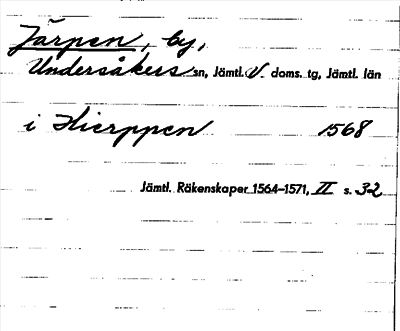 Järpen, by,
Undersåkers sn, Jämtl. V. doms. tg, Jämtl. län
i Hierppen 1568
Jämtl. Räkenskaper 1564–1571, II s. 32